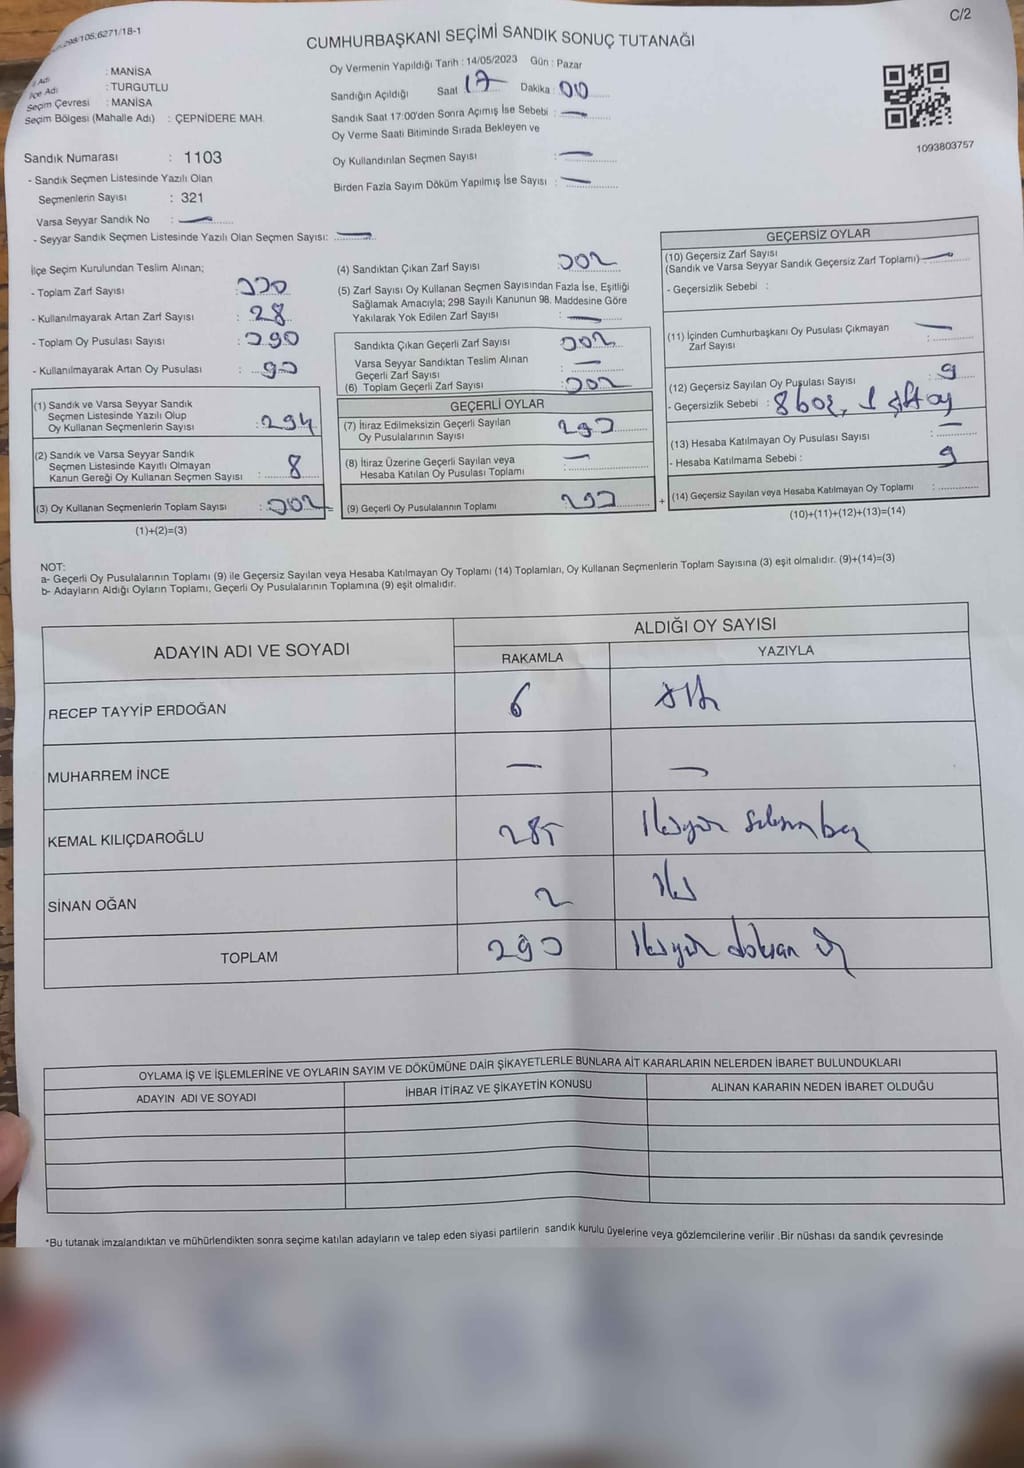 298/105:6271/18-1
C/2
CUMHURBAŞKANI SEÇİMİ SANDIK SONUÇ TUTANAĞI
İl Adı : MANİSA
İlçe Adı : TURGUTLU
Seçim Çevresi : MANİSA
Seçim Bölgesi (Mahalle Adı) : ÇEPNİDERE MAH.
Sandık Numarası : 1103
- Sandık Seçmen Listesinde Yazılı Olan
Seçmenlerin Sayısı : 321
Varsa Seyyar Sandık No : —
- Seyyar Sandık Seçmen Listesinde Yazılı Olan Seçmen Sayısı: —
Oy Vermenin Yapıldığı Tarih : 14/05/2023 Gün : Pazar
Sandığın Açıldığı Saat 17 Dakika : 00
Sandık Saat 17:00'den Sonra Açımış İse Sebebi : —
Oy Verme Saati Bitiminde Sırada Bekleyen ve
Oy Kullandırılan Seçmen Sayısı : —
Birden Fazla Sayım Döküm Yapılmış İse Sayısı : —
1093803757
İlçe Seçim Kurulundan Teslim Alınan;
- Toplam Zarf Sayısı : 330
- Kullanılmayarak Artan Zarf Sayısı : 28
- Toplam Oy Pusulası Sayısı : 390
- Kullanılmayarak Artan Oy Pusulası : 90
(1) Sandık ve Varsa Seyyar Sandık
Seçmen Listesinde Yazılı Olup
Oy Kullanan Seçmenlerin Sayısı : 294
(2) Sandık ve Varsa Seyyar Sandık
Seçmen Listesinde Kayıtlı Olmayan
Kanun Gereği Oy Kullanan Seçmen Sayısı : 8
(3) Oy Kullanan Seçmenlerin Toplam Sayısı : 302
(1)+(2)=(3)
(4) Sandıktan Çıkan Zarf Sayısı : 302
(5) Zarf Sayısı Oy Kullanan Seçmen Sayısından Fazla İse, Eşitliği
Sağlamak Amacıyla; 298 Sayılı Kanunun 98. Maddesine Göre
Yakılarak Yok Edilen Zarf Sayısı : —
Sandıkta Çıkan Geçerli Zarf Sayısı : 302
Varsa Seyyar Sandıktan Teslim Alınan
Geçerli Zarf Sayısı : —
(6) Toplam Geçerli Zarf Sayısı : 302
GEÇERLİ OYLAR
(7) İtiraz Edilmeksizin Geçerli Sayılan
Oy Pusulalarının Sayısı : 293
(8) İtiraz Üzerine Geçerli Sayılan veya
Hesaba Katılan Oy Pusulası Toplamı : —
(9) Geçerli Oy Pusulalarının Toplamı : 293
GEÇERSİZ OYLAR
(10) Geçersiz Zarf Sayısı
(Sandık ve Varsa Seyyar Sandık Geçersiz Zarf Toplamı) —
- Geçersizlik Sebebi :
(11) İçinden Cumhurbaşkanı Oy Pusulası Çıkmayan
Zarf Sayısı : —
(12) Geçersiz Sayılan Oy Pusulası Sayısı : 9
- Geçersizlik Sebebi : 8 boş, 1 çift oy
(13) Hesaba Katılmayan Oy Pusulası Sayısı : —
- Hesaba Katılmama Sebebi :
+ (14) Geçersiz Sayılan veya Hesaba Katılmayan Oy Toplamı : 9
(10)+(11)+(12)+(13)=(14)
NOT:
a- Geçerli Oy Pusulalarının Toplamı (9) ile Geçersiz Sayılan veya Hesaba Katılmayan Oy Toplamı (14) Toplamları, Oy Kullanan Seçmenlerin Toplam Sayısına (3) eşit olmalıdır. (9)+(14)=(3)
b- Adayların Aldığı Oyların Toplamı, Geçerli Oy Pusulalarının Toplamına (9) eşit olmalıdır.
ADAYIN ADI VE SOYADI
ALDIĞI OY SAYISI
RAKAMLA YAZIYLA
RECEP TAYYİP ERDOĞAN 6 altı
MUHARREM İNCE — —
KEMAL KILIÇDAROĞLU 285 İkiyüz seksen beş
SİNAN OĞAN 2 iki
TOPLAM 293 İkiyüz doksan üç
OYLAMA İŞ VE İŞLEMLERİNE VE OYLARIN SAYIM VE DÖKÜMÜNE DAİR ŞİKAYETLERLE BUNLARA AİT KARARLARIN NELERDEN İBARET BULUNDUKLARI
ADAYIN ADI VE SOYADI İHBAR İTİRAZ VE ŞİKAYETİN KONUSU ALINAN KARARIN NEDEN İBARET OLDUĞU
*Bu tutanak imzalandıktan ve mühürlendikten sonra seçime katılan adayların ve talep eden siyasi partilerin sandık kurulu üyelerine veya gözlemcilerine verilir .Bir nüshası da sandık çevresinde